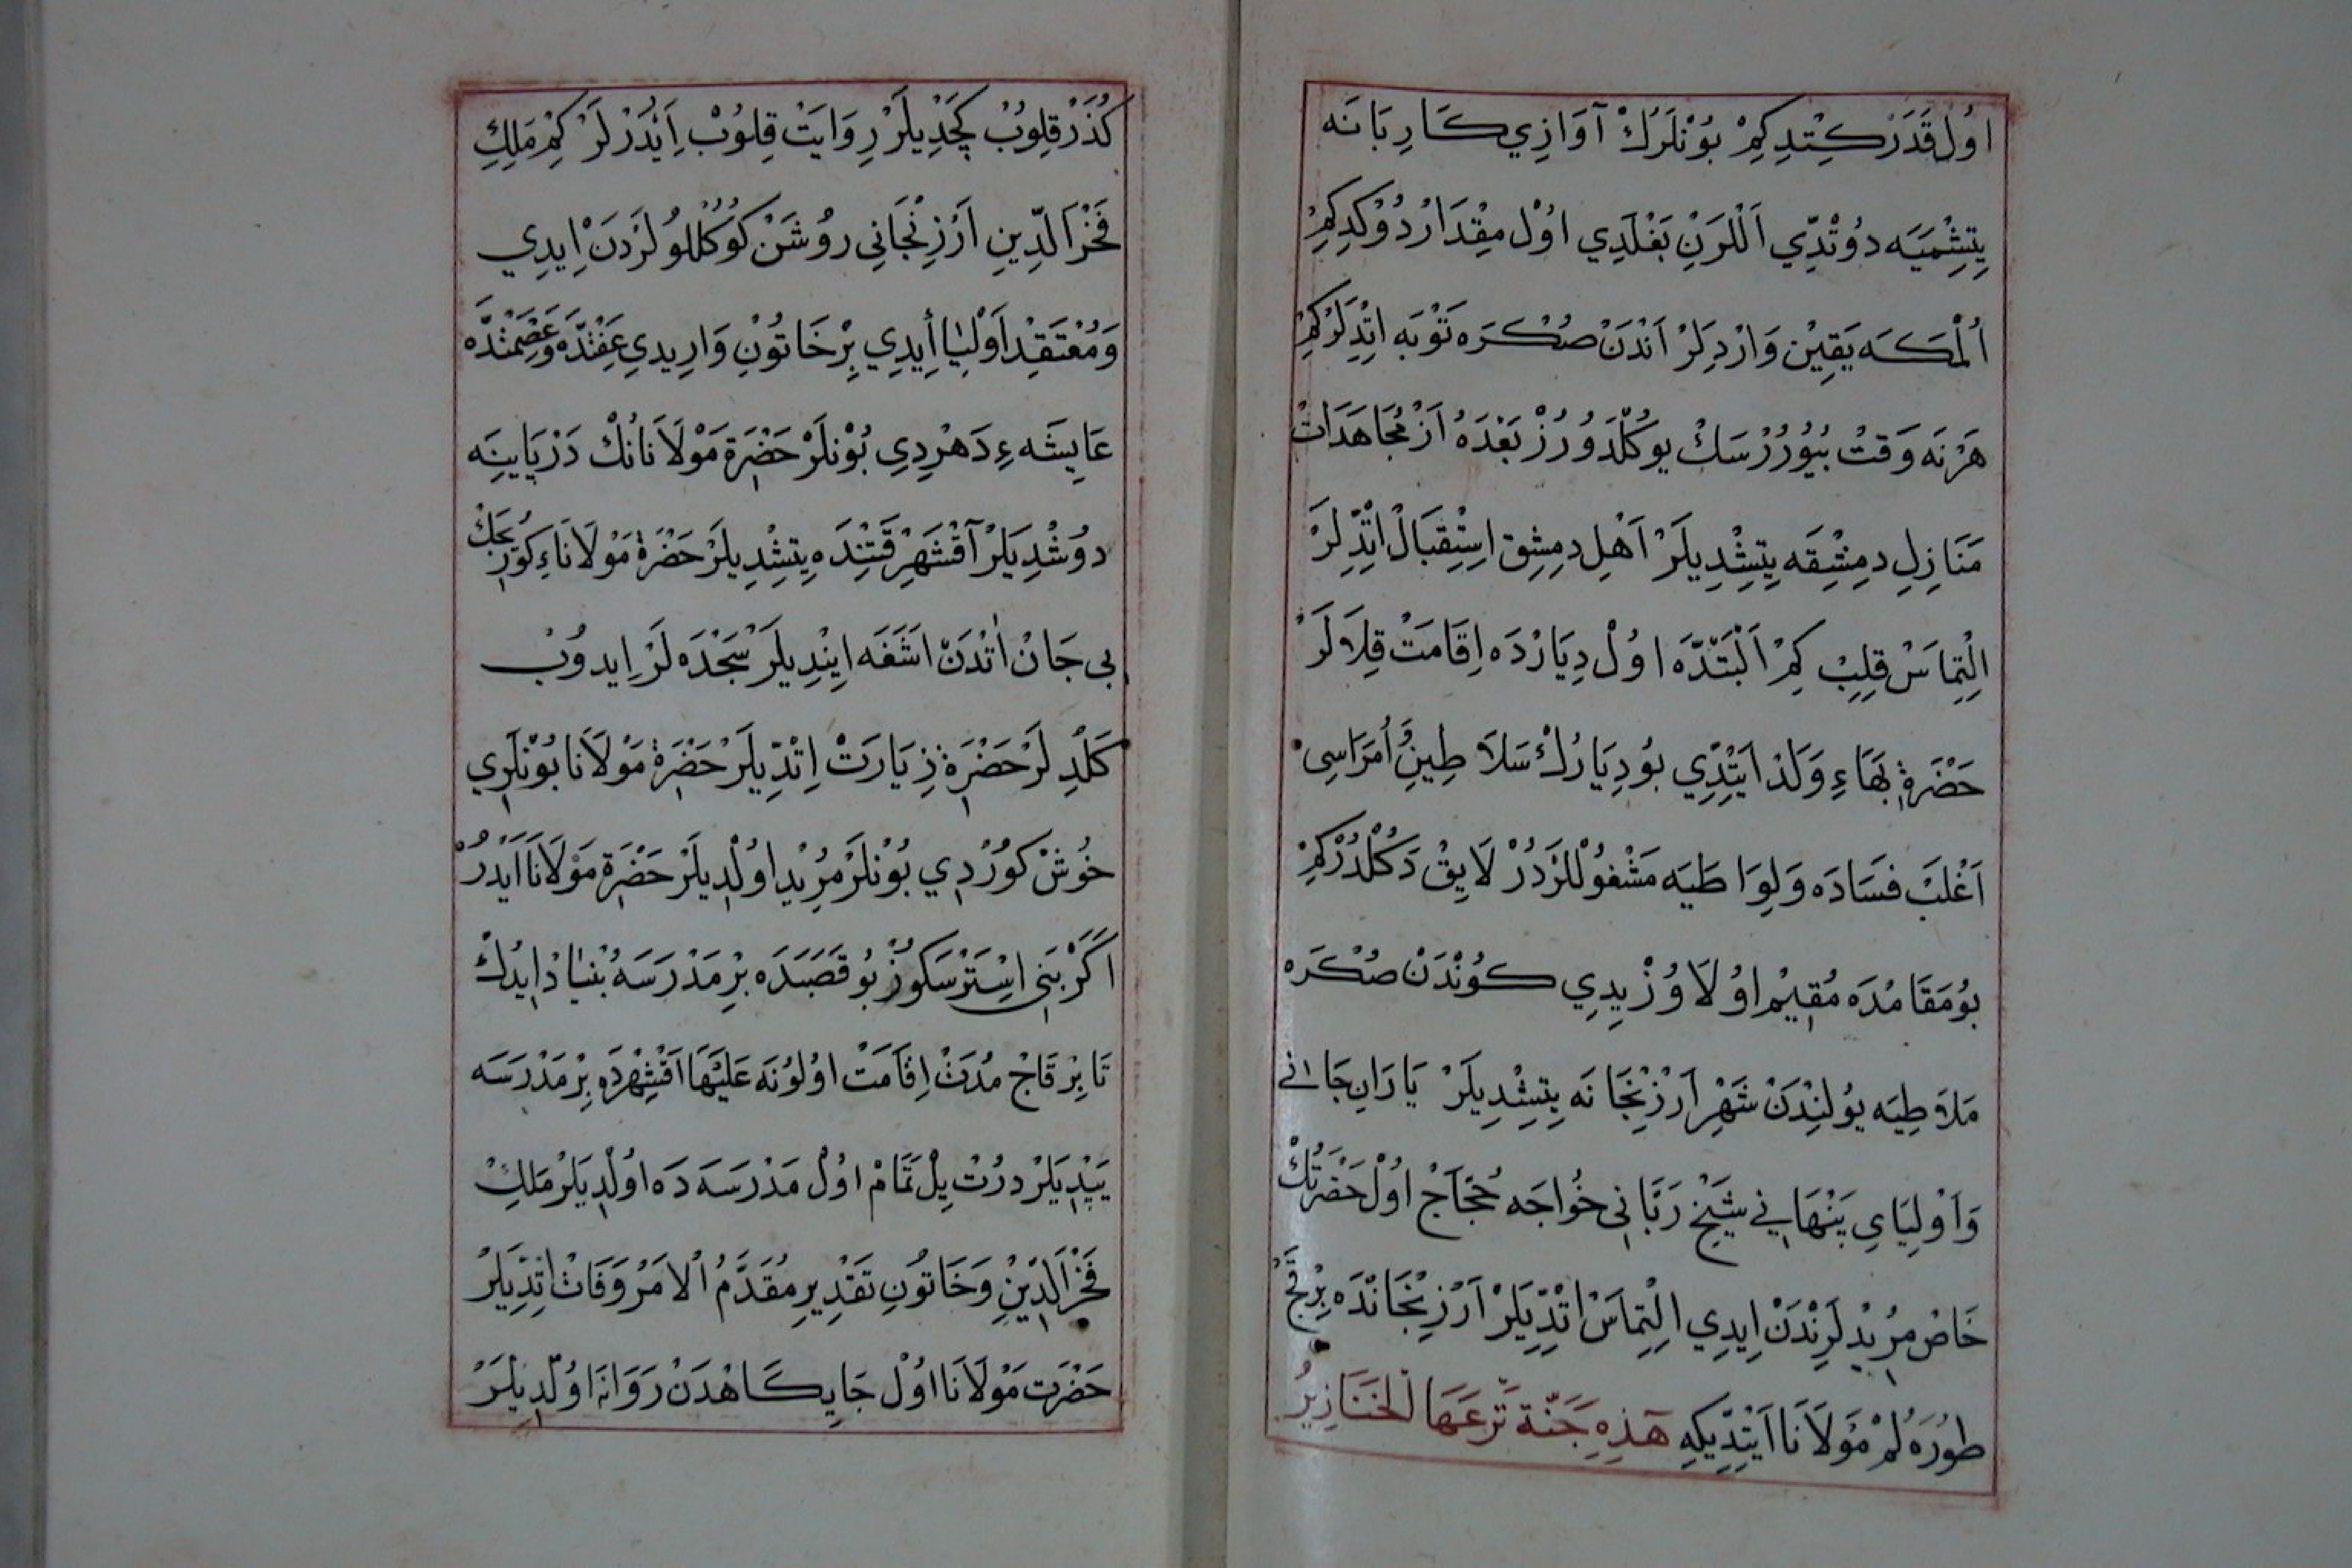 اُولْ قَدَرْ كِتْدِكِمْ بُوْنْلَرُكْ آوَازِي كَارِبَانَه
يِتِشِمْيَه دُوتْدِّي اَلْلَرِنْ بَغْلَدِي اُولْ مِقْدَارْ دُوْكْدِكِمْ
اُلْمَكَه يَقِيْنْ وَارْدِلَرْ اَنْدَنْ صُكْرَه تَوْبَه اِتْدِلَرْكِمْ
هَرْنَه وَقتْ بُيُورُرْسَكْ يوكُلْدَوُرُزْ بَعْدَهُ اَزْ مُجَاهَدَاتْ
مَنَازِلِ دِمِشْقَه يِتِشْدِيلَرْ اَهْلِ دِمِشِق اِسْتِقْبَالْ اِتْدِّلَرْ
اِلْتِمَاسْ قِلِبْ كِمْ اَلْبَتَّدَه اوُلْ دِيَارْدَه اِقَامَتْ قِلَالَرْ
حَضْرَةِ بَهَاءِ وَلَدْ اَيِتْدِّي بُودِيَارُكْ سَلَاطِينِ وُ اُمَرَاسِى
اَغْلَبْ فَسَادَه وَلِوَاطَيَه مَشْغُولْلَرْدُرْ لَايِقْ دَكُلْدُرْكِمْ
بُومَقَامْدَه مُقِيْم اوُلَاوُزْ يِدِي كُونْدَنْ صُكْرَه
مَلَاطِيَه يُولِنْدَنْ شَهْرِ اَرْزِنْجَانَه يِتِشْدِيلَرْ يَارَانِ جَانِي
وَاَوْلِيَايِ پَنْهَانِي شَيْخِ رَبَّانِي خُواجَه حُجَّاجْ اوُلْ حَضْرَتُكْ
خَاصْ مُرِيْدْلَرِنْدَنْ اِيدِي اِلْتِمَاسْ اِتْدِّيلَرْ اَرْزِنْجَانْدَه بِرْ قَچْ
طُورَه لُمْ مَوْلَانَا اَيِتْدِّيكِه هٰذِهِ جَنَّة تَرْعَهَا الْخَنَازِيرُ
كُذَرْ قِلوُبْ كَچْدِيلَرْ رِوَايَتْ قِلوُبْ اِيْدُرْلَرْ كِمْ مَلِكِ
فَخْرُ الدِّينِ اَرْزِنْجَانِى رُوشَنْ كُوكُلْلُولَرْدَنْ اِيدِي
وَمُعْتَقِدِ اَوْلِيَا اِيدِي بِرْ خَاتُونِ وَارِيدِي عِفَّتْدَه وَعِصْمَتْدَه
عَايِشَهءِ دَهْرِدِي بُوْنلَرْ حَضْرَةِ مَوْلَانَانُكْ دَرْيَايِينَه
دُوشْدِيلَرْ آقْشَهِرْ قَتِنْدَه يِتِشْدِيلَرْ حَضْرَةِ مَوْلَانَاءِ كُورِيجَكْ
بِى جَانْ اٰتْدَنْ اَشَغَه اِينْدِيلَرْ سَجْدَه لَرْ اِيدوُبْ
كَلْدِلَرْ حَضْرَةِ زِيَارَتْ اِتْدِّيلَرْ حَضْرَةِ مَوْلَانَا بُوْنْلَرِي
خُوشْ كُورْدِي بُوْنْلَرْ مُرِيْد اوُلْدِيلَرْ حَضْرَةِ مَوْلَانَا اَيْدُرْ
اَكَرْ بَنِى اِسْتَرْسَكُوزْ بُو قَصَبَدَه بِرْ مَدْرَسَهُ بُنْيَادْ اِيدُكْ
تَا بِرْ قَاجْ مُدَتْ اِقَامَتْ اوُلوُنَه عَلَيْهَا اَقْشِهْرْدَه بِرْ مَدْرَسَه
يَپْدِيلَرْ دُرْتْ يِلْ تَمَامْ اوُلْ مَدْرَسَه دَه اوُلْدِيلَرْ مَلِكْ
فَخْرُ الدِّيْنِ وَخَاتُونِ تَقْدِيرِ مُقَدَّمُ الْاَمْرْ وَفَاتْ اِتْدِّيلَرْ
حَضْرَتِ مَوْلَانَا اوُلْ جَايِكَاهْدَنْ رَوَانَه اوُلْدِيلَرْ